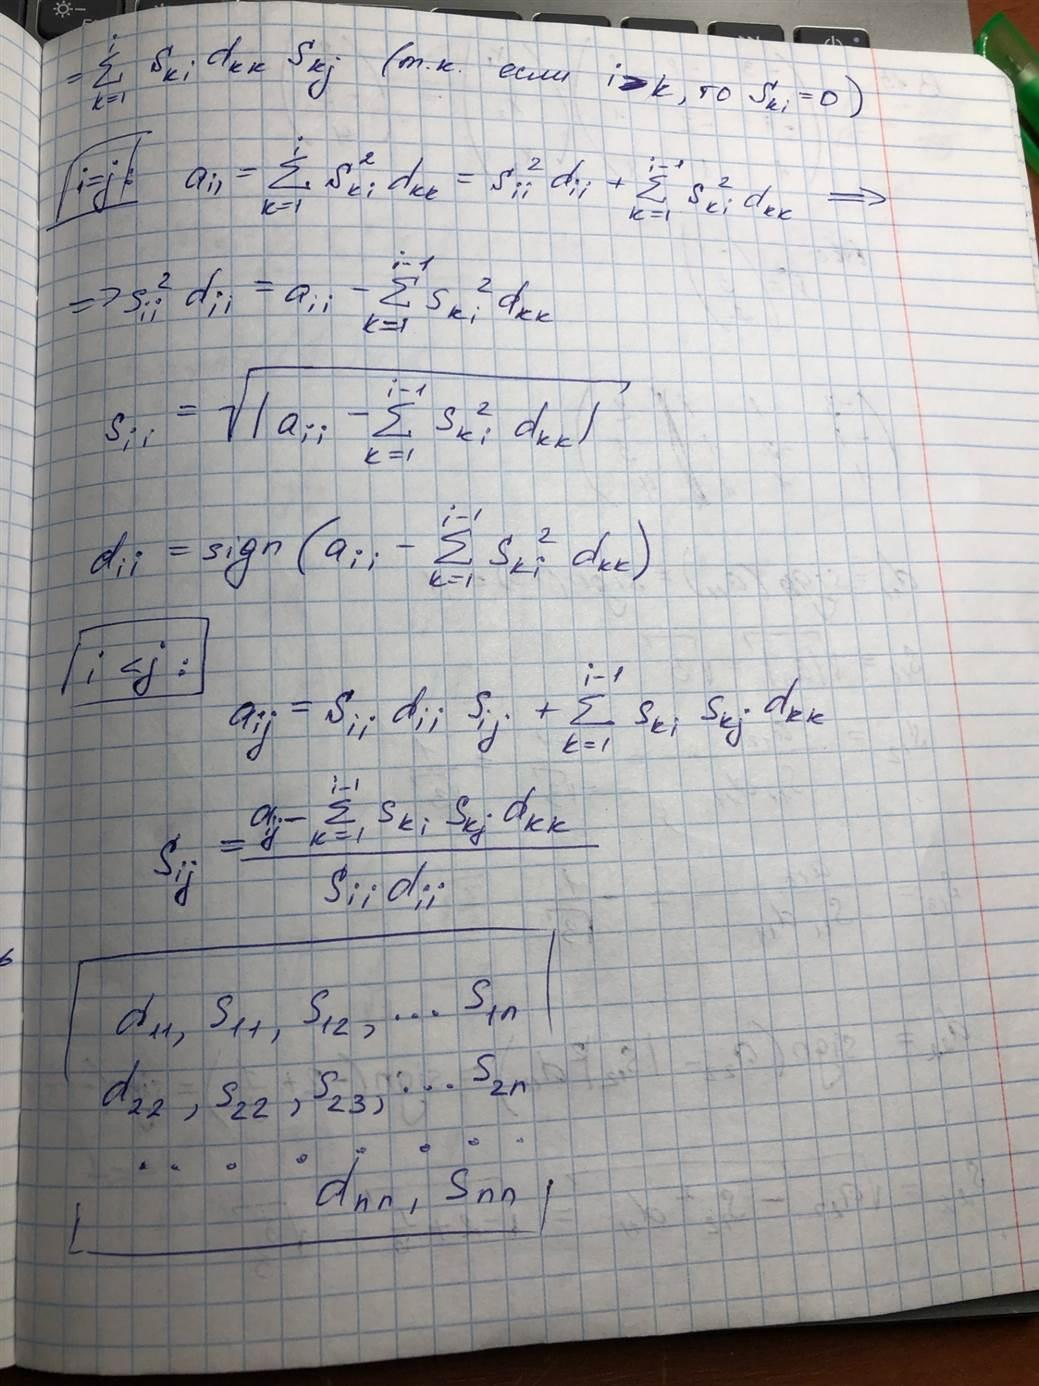 = ∑_{k=1}^{i} s_{ki} d_{kk} s_{kj} (т.к. если i>k, то s_{ki} = 0)
i=j: a_{ii} = ∑_{k=1}^{i} s_{ki}^2 d_{kk} = s_{ii}^2 d_{ii} + ∑_{k=1}^{i-1} s_{ki}^2 d_{kk} ⟹
=> s_{ii}^2 d_{ii} = a_{ii} - ∑_{k=1}^{i-1} s_{ki}^2 d_{kk}
s_{ii} = √|a_{ii} - ∑_{k=1}^{i-1} s_{ki}^2 d_{kk}|
d_{ii} = sign (a_{ii} - ∑_{k=1}^{i-1} s_{ki}^2 d_{kk})
i < j :
a_{ij} = s_{ii} d_{ii} s_{ij} + ∑_{k=1}^{i-1} s_{ki} s_{kj} d_{kk}
s_{ij} = (a_{ij} - ∑_{k=1}^{i-1} s_{ki} s_{kj} d_{kk}) / (s_{ii} d_{ii})
d_{11}, s_{11}, s_{12}, ... s_{1n}
d_{22}, s_{22}, s_{23}, ... s_{2n}
. . . . . . . .
d_{nn}, s_{nn}